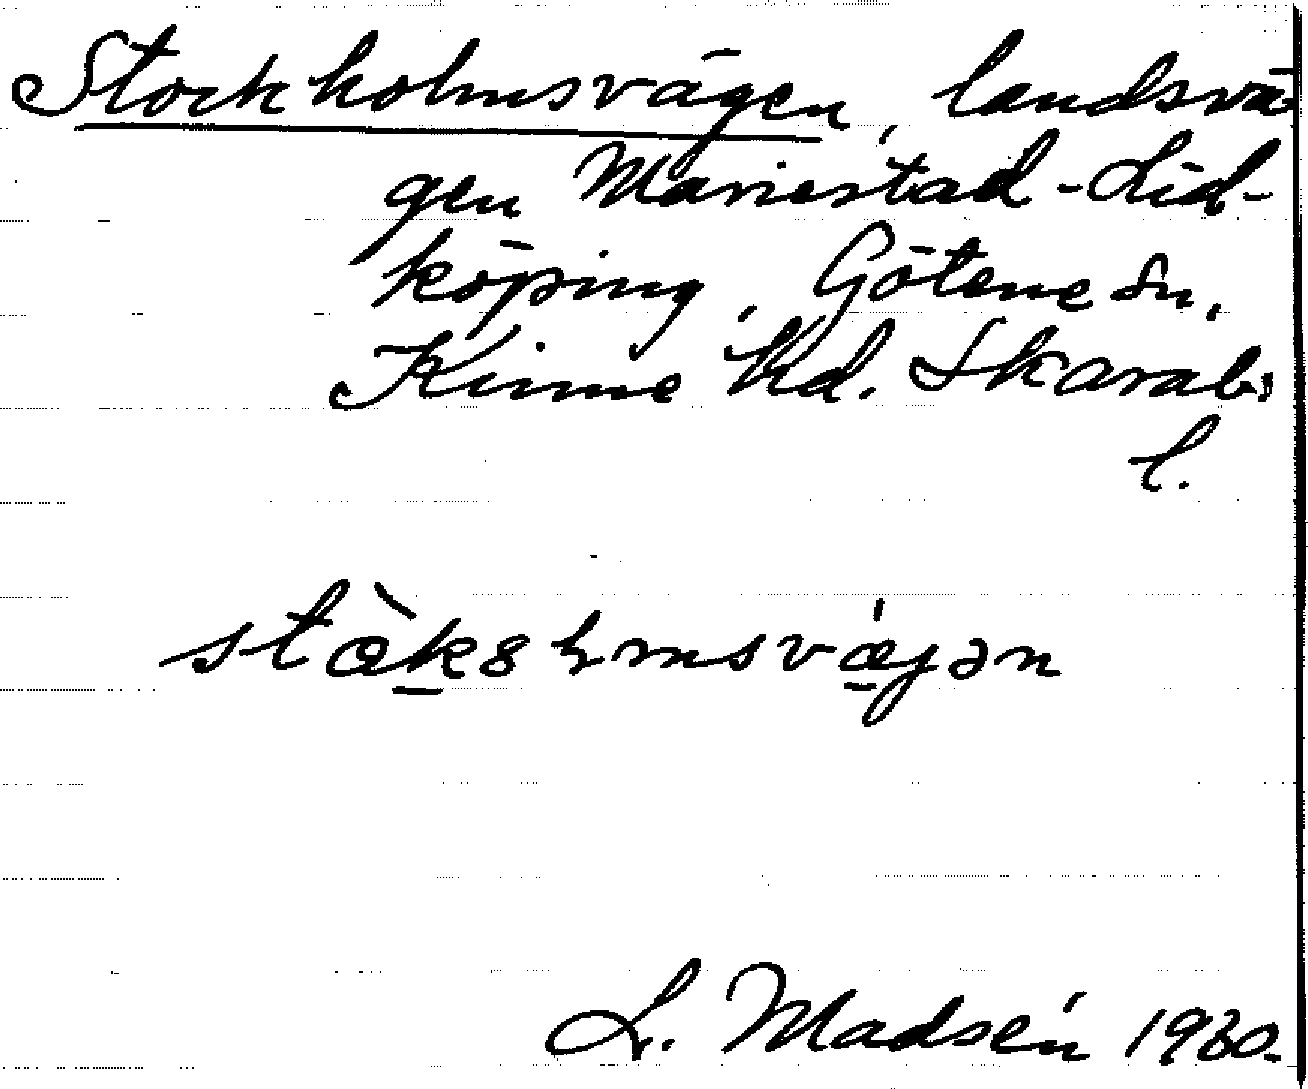 Stockholmsvägen, landsvä-
gen Mariestad-Lid-
köping, Götene sn,
Kinne hd. Skarab.
l.
L. Madsén 1930.